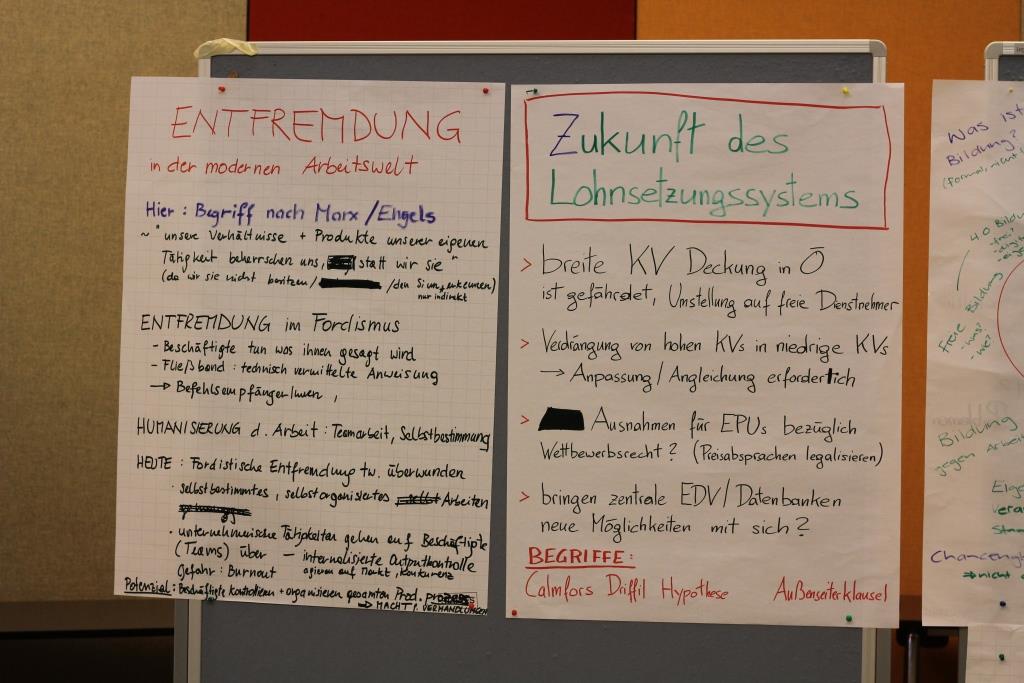 ENTFREMDUNG
in der modernen Arbeitswelt
Hier : Begriff nach Marx/Engels
~ "unsere Verhältnisse + Produkte unserer eigenen
Tätigkeit beherrschen uns, statt wir sie"
(da wir sie nicht besitzen/ /den Sinn erkennen)
nur indirekt
ENTFREMDUNG im Fordismus
- Beschäftigte tun was ihnen gesagt wird
- Fließband : technisch vermittelte Anweisung
→ BefehlsempfängerInnen,
HUMANISIERUNG d. Arbeit : Teamarbeit, Selbstbestimmung
HEUTE : Fordistische Entfremdung tw. überwunden
· selbstbestimmtes, selbstorganisiertes Arbeiten
· unternehmerische Tätigkeiten gehen auf Beschäftigte
(Teams) über — internalisierte Outputkontrolle
agieren auf Markt, Konkurrenz
Gefahr : Burnout
Potenzial : Beschäftigte kontrollieren + organisieren gesamten Prod.prozess
→ MACHT i. VERHANDLUNGEN
Zukunft des
Lohnsetzungssystems
> breite KV Deckung in Ö
ist gefährdet, Umstellung auf freie Dienstnehmer
> Verdrängung von hohen KVs in niedrige KVs
→ Anpassung/Angleichung erforderlich
> Ausnahmen für EPUs bezüglich
Wettbewerbsrecht? (Preisabsprachen legalisieren)
> bringen zentrale EDV/Datenbanken
neue Möglichkeiten mit sich?
BEGRIFFE:
Calmfors Driffil Hypothese Außenseiterklausel
Was ist
Bildung?
(formal, nicht
4.0 Bildu
freie Bildung
- was?
- wie?
Bildung
gegen Arbei
Eige
Vera
Chancengl
→ nicht